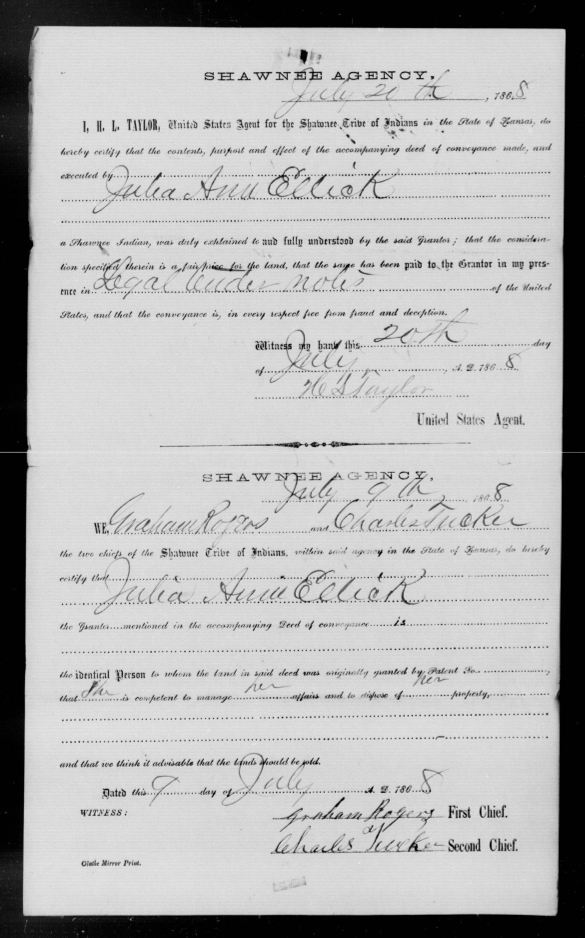 SHAWNEE AGENCY,
July 20th, 1868
I, H. L. TAYLOR, United States Agent for the Shawnee Tribe of Indians in the State of Kansas, do
hereby certify that the contents, purport and effect of the accompanying deed of conveyance made, and
executed by
Julia Ann Ellick
a Shawnee Indian, was duly explained to and fully understood by the said Grantor; that the considera-
tion specified therein is a fair price for the land, that the same has been paid to the Grantor in my pres-
ence in Legal tender notes of the United
States, and that the conveyance is, in every respect free from fraud and deception.
Witness my hand this 20th day
of July, A. D. 1868
H L Taylor
United States Agent.
SHAWNEE AGENCY,
July 9th, 1868
WE, Graham Rogers and Charles Tucker
the two chiefs of the Shawnee Tribe of Indians, within said agency in the State of Kansas, do hereby
certify that
Julia Ann Ellick
the Grantor mentioned in the accompanying Deed of conveyance is
the identical Person to whom the land in said deed was originally granted by Patent To her;
that She is competent to manage her affairs and to dispose of property,
and that we think it advisable that the lands should be sold.
Dated this 9 day of July A. D. 1868
WITNESS:
Graham Rogers First Chief.
Charles Tucker Second Chief.
Olathe Mirror Print.